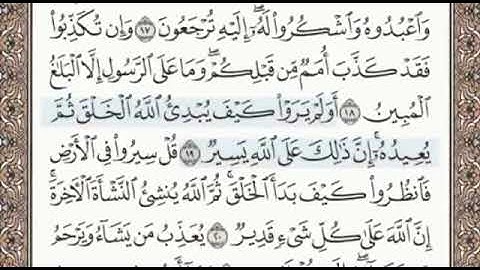 وَٱعْبُدُوهُ وَٱشْكُرُوا۟ لَهُۥٓ ۖ إِلَيْهِ تُرْجَعُونَ ۝١٧ وَإِن تُكَذِّبُوا۟
فَقَدْ كَذَّبَ أُمَمٌ مِّن قَبْلِكُمْ ۖ وَمَا عَلَى ٱلرَّسُولِ إِلَّا ٱلْبَلَٰغُ
ٱلْمُبِينُ ۝١٨ أَوَلَمْ يَرَوْا۟ كَيْفَ يُبْدِئُ ٱللَّهُ ٱلْخَلْقَ ثُمَّ
يُعِيدُهُۥٓ ۚ إِنَّ ذَٰلِكَ عَلَى ٱللَّهِ يَسِيرٌ ۝١٩ قُلْ سِيرُوا۟ فِى ٱلْأَرْضِ
فَٱنظُرُوا۟ كَيْفَ بَدَأَ ٱلْخَلْقَ ۚ ثُمَّ ٱللَّهُ يُنشِئُ ٱلنَّشْأَةَ ٱلْـَٔاخِرَةَ ۚ
إِنَّ ٱللَّهَ عَلَىٰ كُلِّ شَىْءٍ قَدِيرٌ ۝٢٠ يُعَذِّبُ مَن يَشَآءُ وَيَرْحَمُ